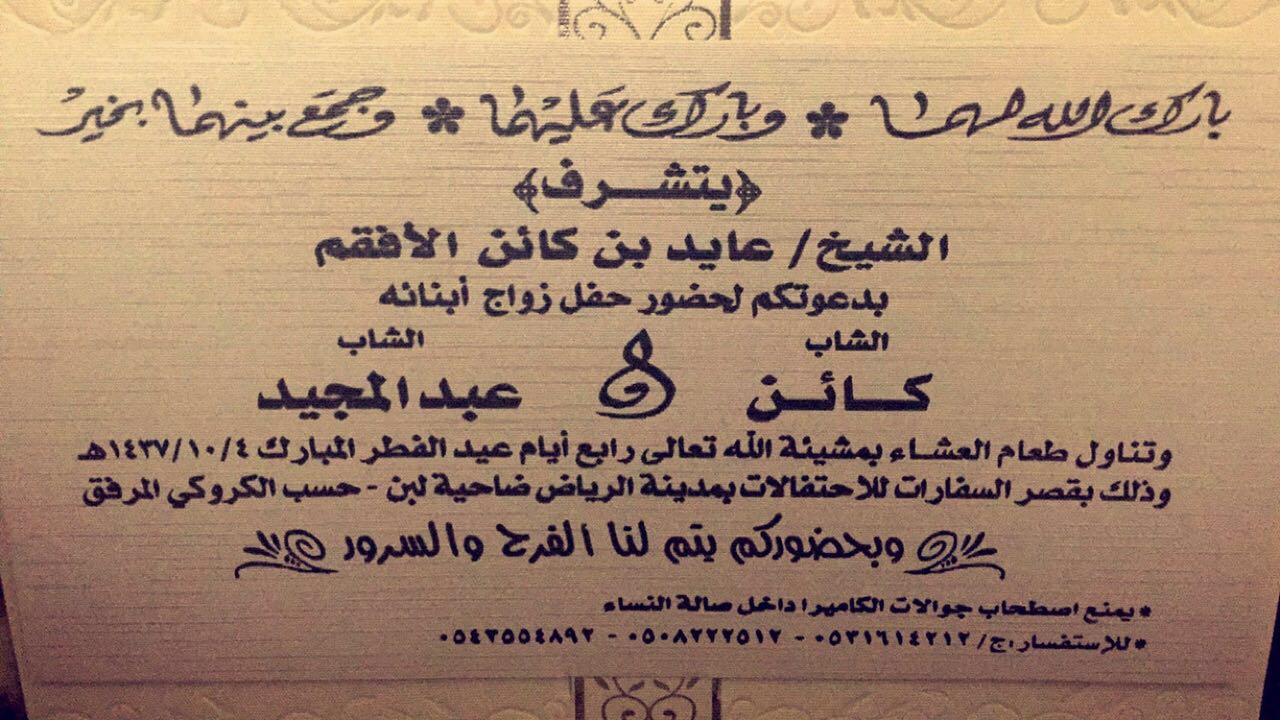 بارك الله لهما * وبارك عليهما * وجمع بينهما بخير
﴿يتشرف﴾
الشيخ/ عايد بن كائن الأفقم
بدعوتكم لحضور حفل زواج أبنائه
الشاب
الشاب
كائن و عبدالمجيد
وتناول طعام العشاء بمشيئة الله تعالى رابع أيام عيد الفطر المبارك ١٤٣٧/١٠/٤هـ
وذلك بقصر السفارات للاحتفالات بمدينة الرياض ضاحية لبن - حسب الكروكي المرفق
وبحضوركم يتم لنا الفرح والسرور
*يمنع اصطحاب جوالات الكاميرا داخل صالة النساء
*للإستفسار :ج/ ٠٥٣١٦١٤٢١٢ - ٠٥٠٨٢٢٢٥١٢ - ٠٥٤٣٥٥٤٨٩٢